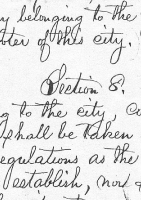 y belonging to the
ter of this city.
Section 8.
g to the city, co
shall be taken
egulations as the
establish, nor a